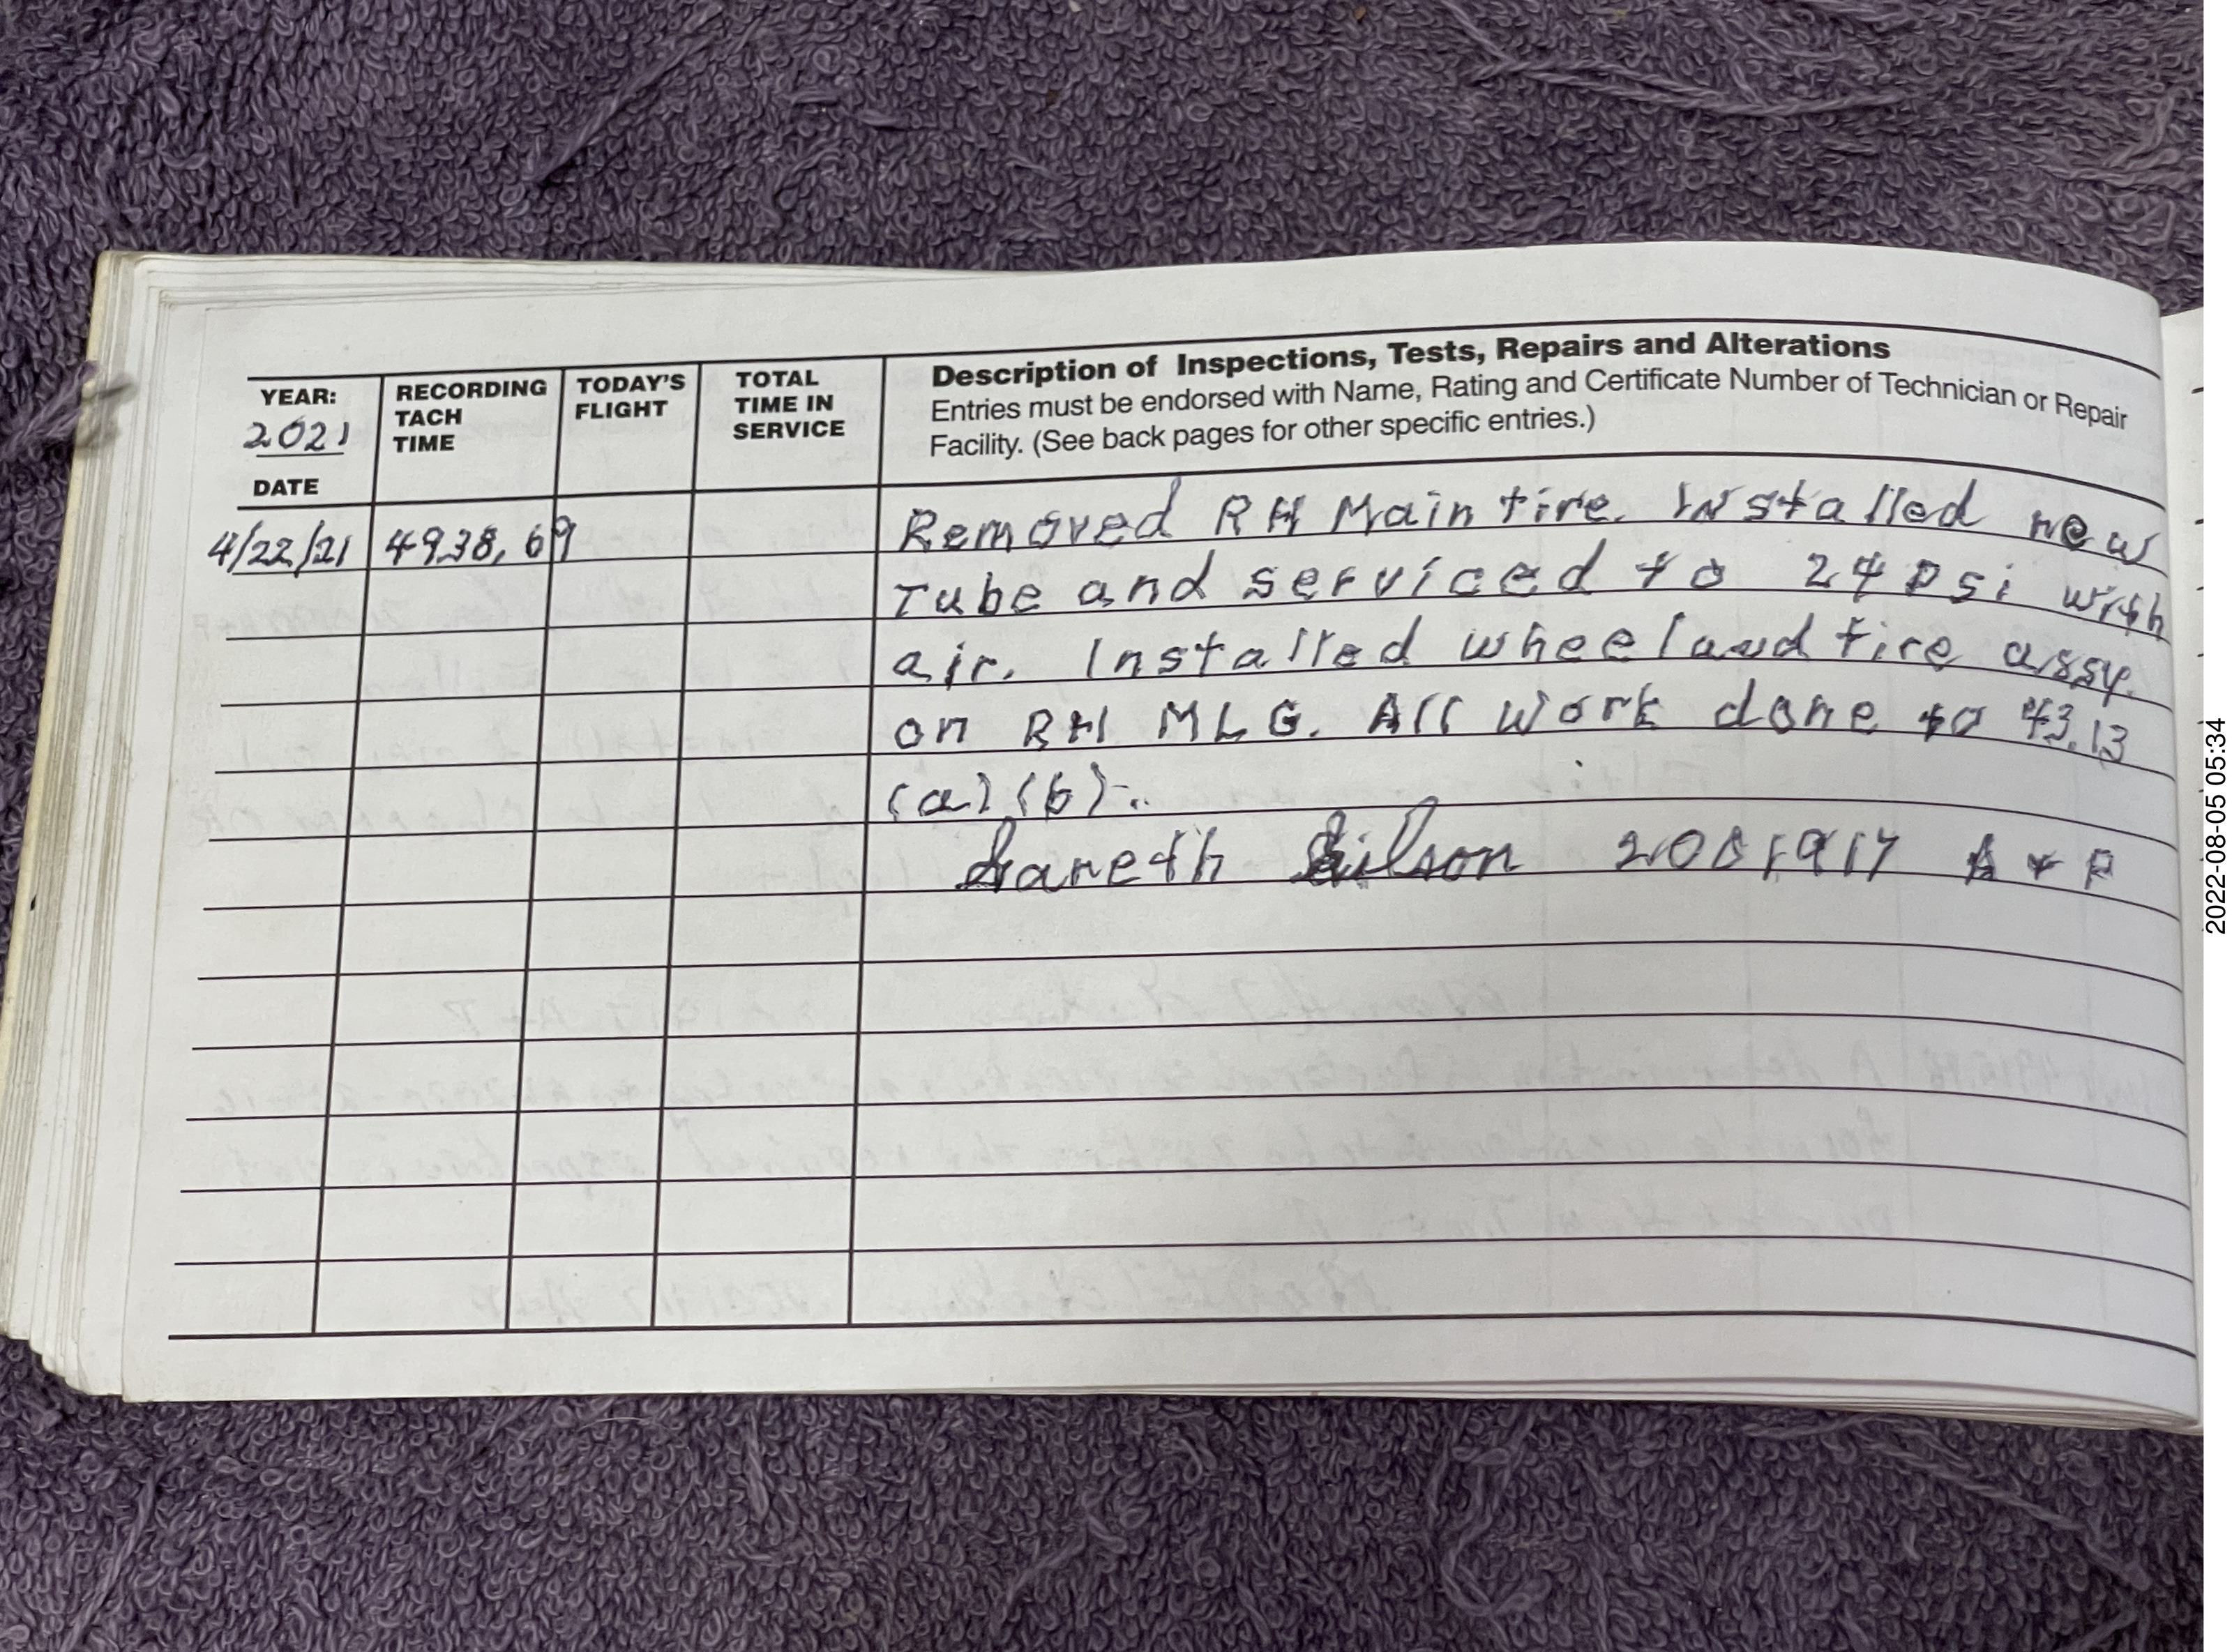 YEAR:
2021
DATE
RECORDING
TACH
TIME
TODAY'S
FLIGHT
TOTAL
TIME IN
SERVICE
Description of Inspections, Tests, Repairs and Alterations
Entries must be endorsed with Name, Rating and Certificate Number of Technician or Repair
Facility. (See back pages for other specific entries.)
4/22/21 4938.69 Removed RH Main tire. Installed new
Tube and serviced to 24 psi with
air. Installed wheel and tire assy.
on RH MLG. All work done to 43.13
(a) (b).
Gareth Gilson A & P
2022-08-05 05:34